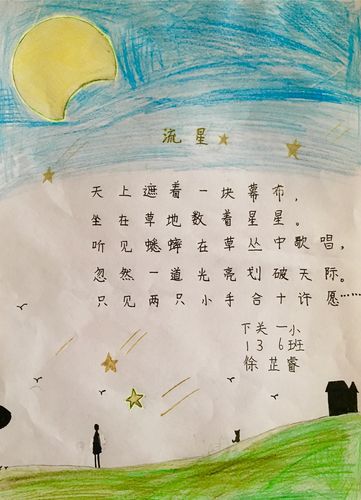 流星
天上遮着一块幕布，
坐在草地数着星星。
听见蟋蟀在草丛中歌唱，
忽然一道光亮划破天际。
只见两只小手合十许愿……
下关一小
136班
徐芷睿